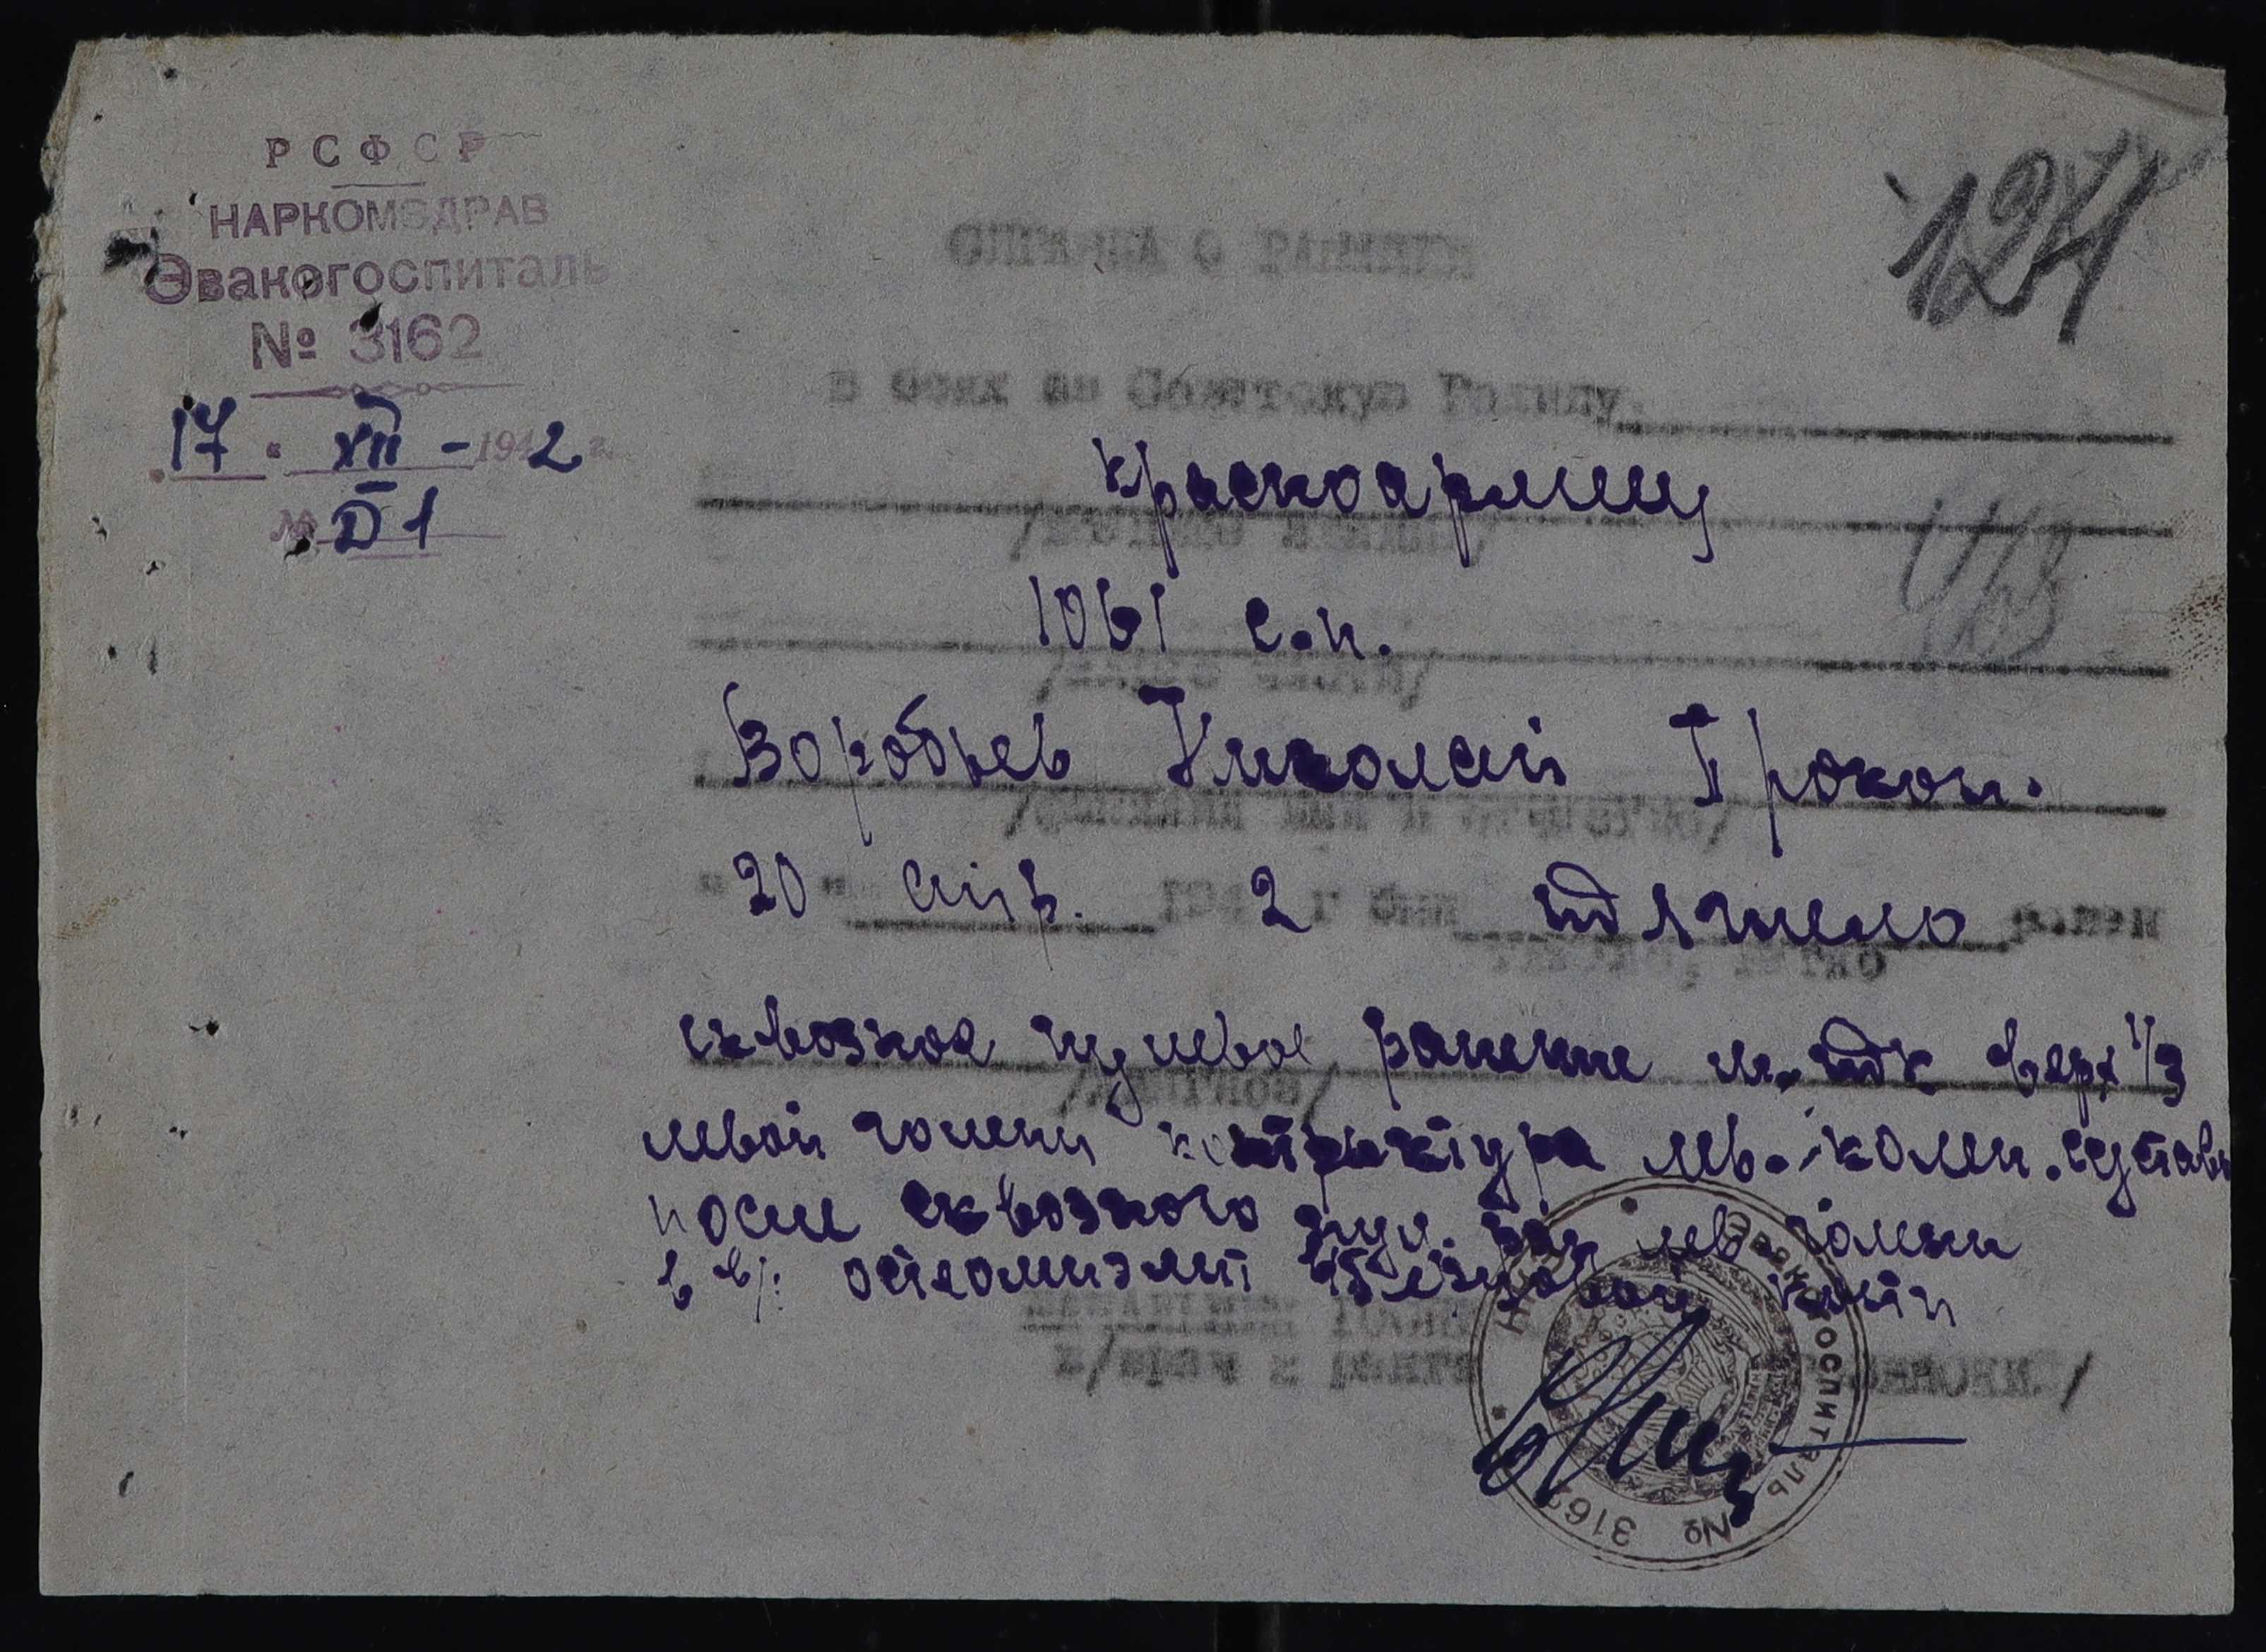 РСФСР
НАРКОМЗДРАВ
Эвакогоспиталь
№ 3162
17 · XII - 1942 г.
№ D1
124
СПРАВКА О РАНЕНИИ
В боях за Советскую Родину,
красноармеец
/воинское звание/
1061 с.п.
Воробьев Николай Прокоп.
/фамилия имя и отчество/
"20" апр. 1942 г был тяжело ранен
тяжело, легко
сквозное пулевое ранение м. тк верх 1/3
/диагноз/
левой голени контрактура лев. колен. сустава
после сквозного пул. ран лев голени
в в/з остеомиэлит берцовой кости
Начальник госпиталя
в/врач ранга
Эвакогоспиталь № 3162